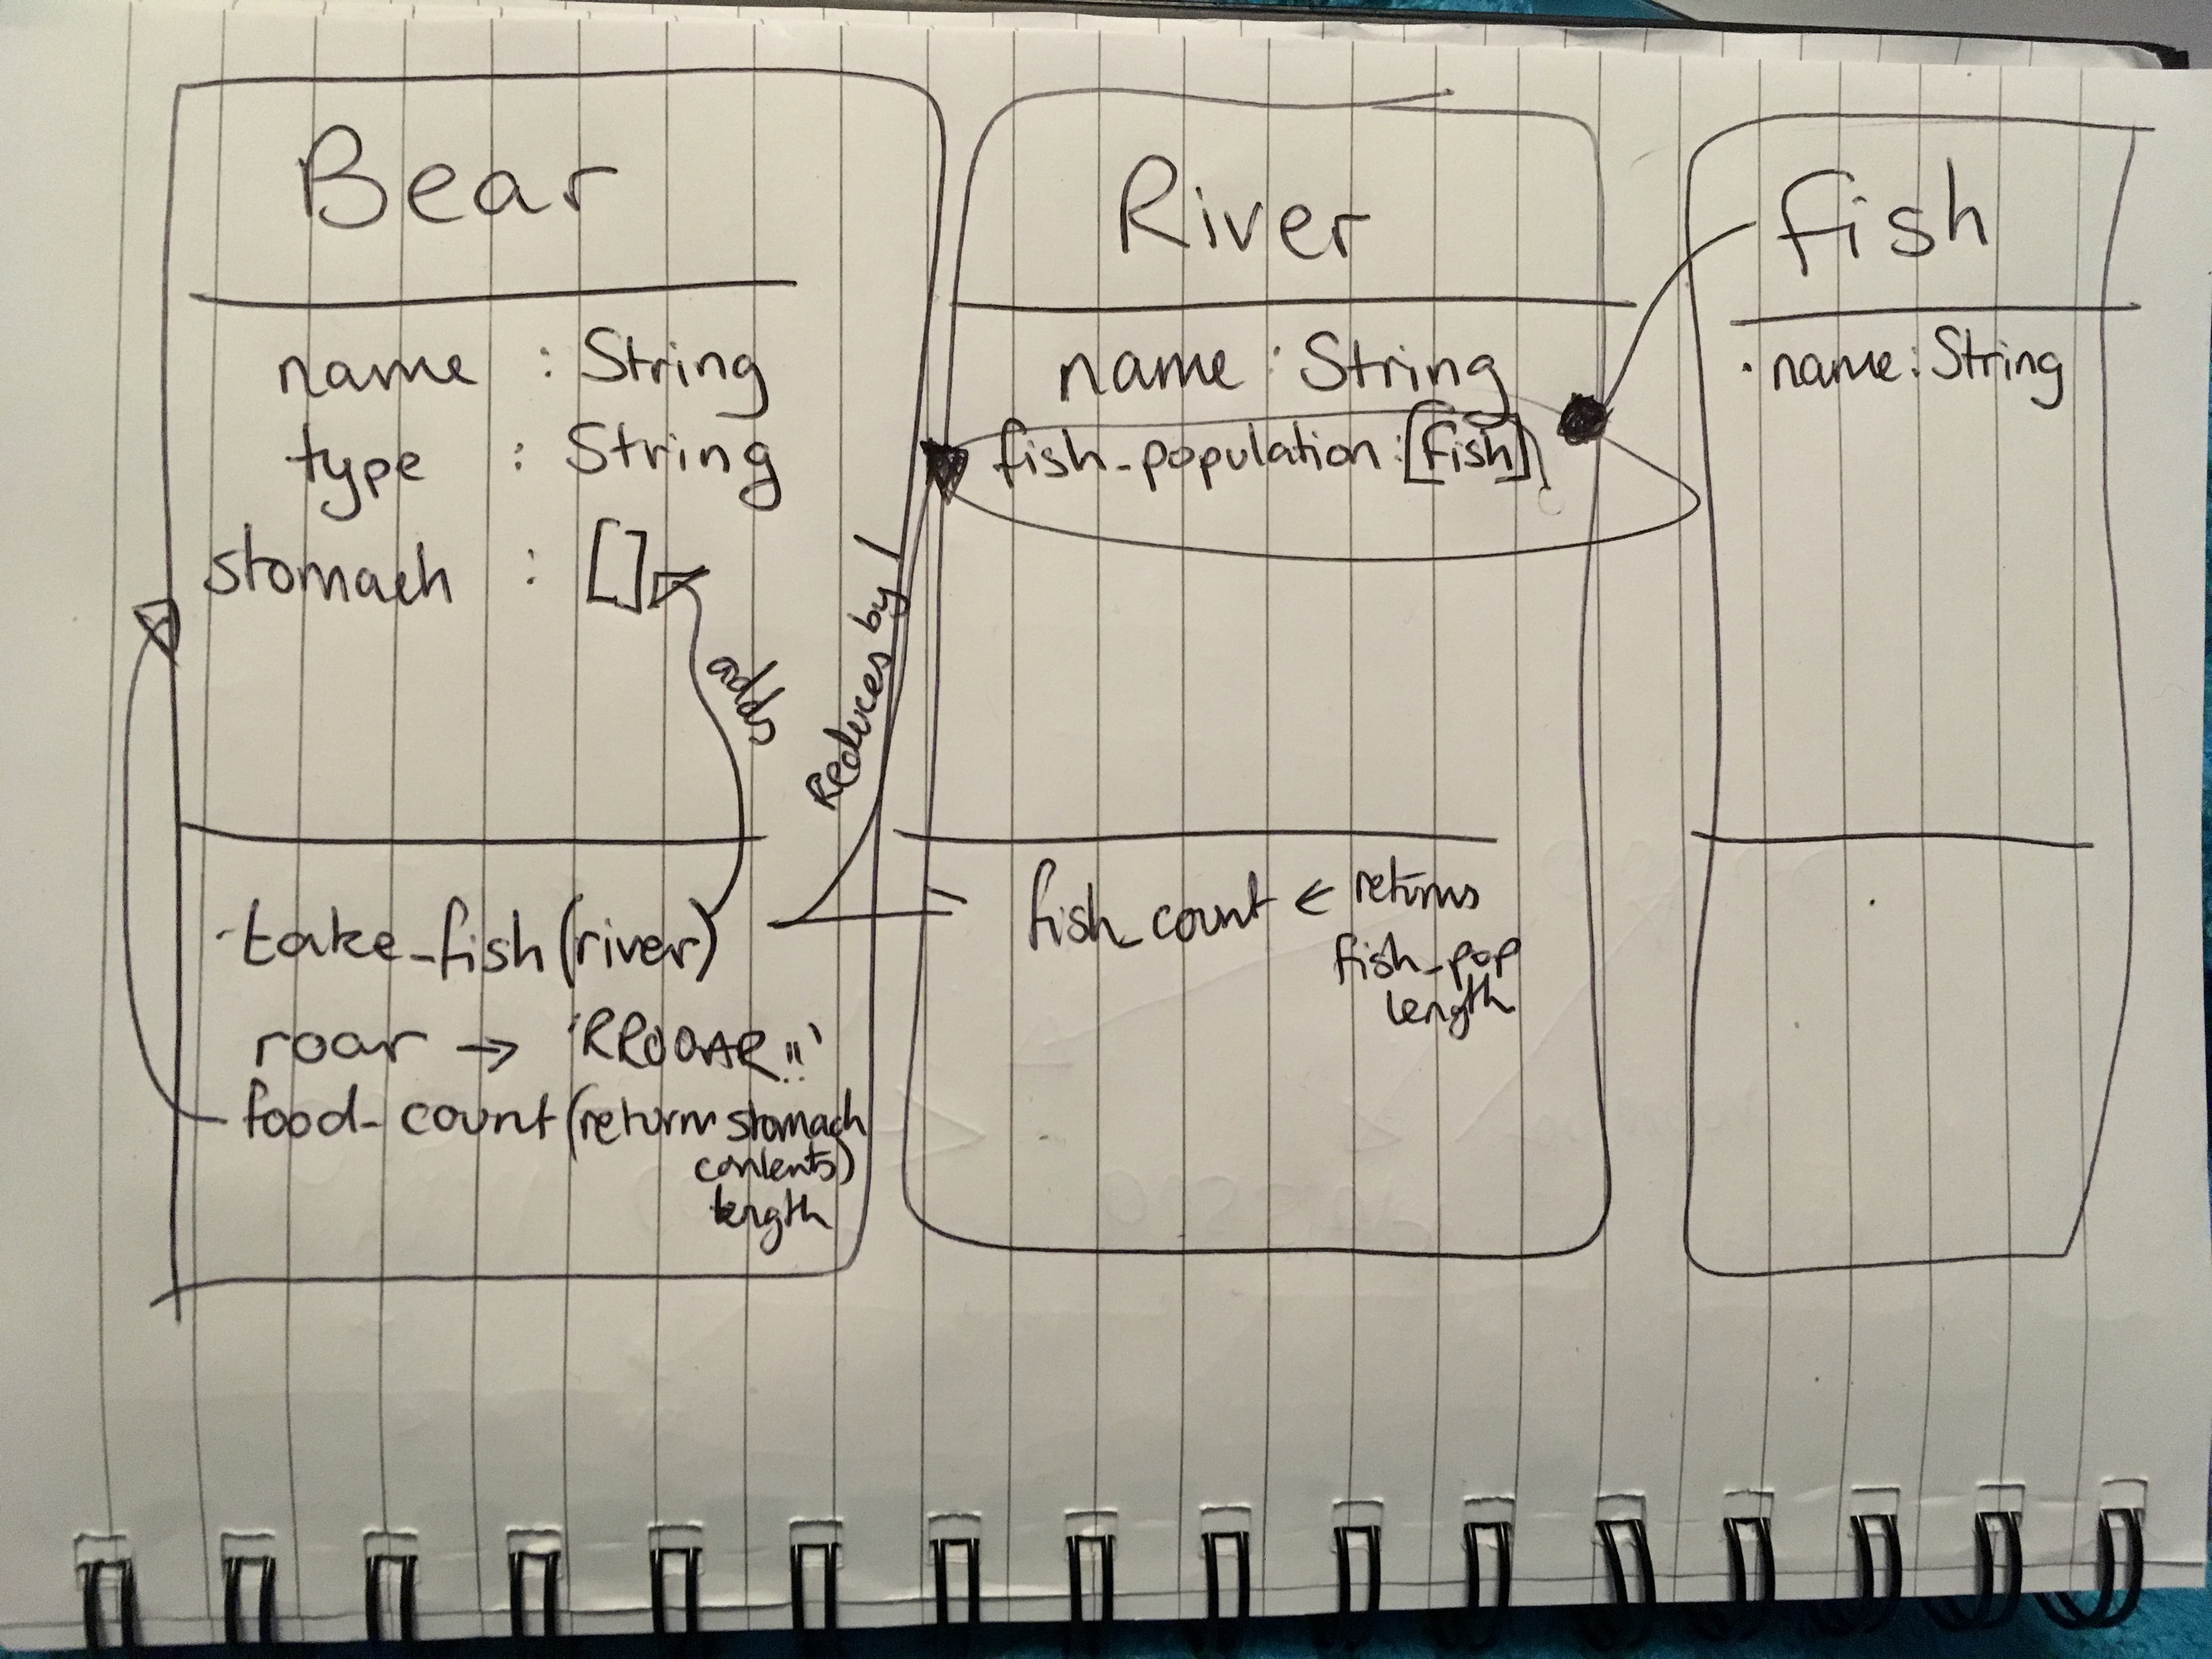 Bear
name : String
type : String
stomach : []
adds
Reduces by 1
take_fish(river)
roar → 'RROOAR!!'
food_count(return stomach
contents)
length
River
name : String
fish_population : [fish]
fish_count ← returns
fish_pop
length
fish
name : String